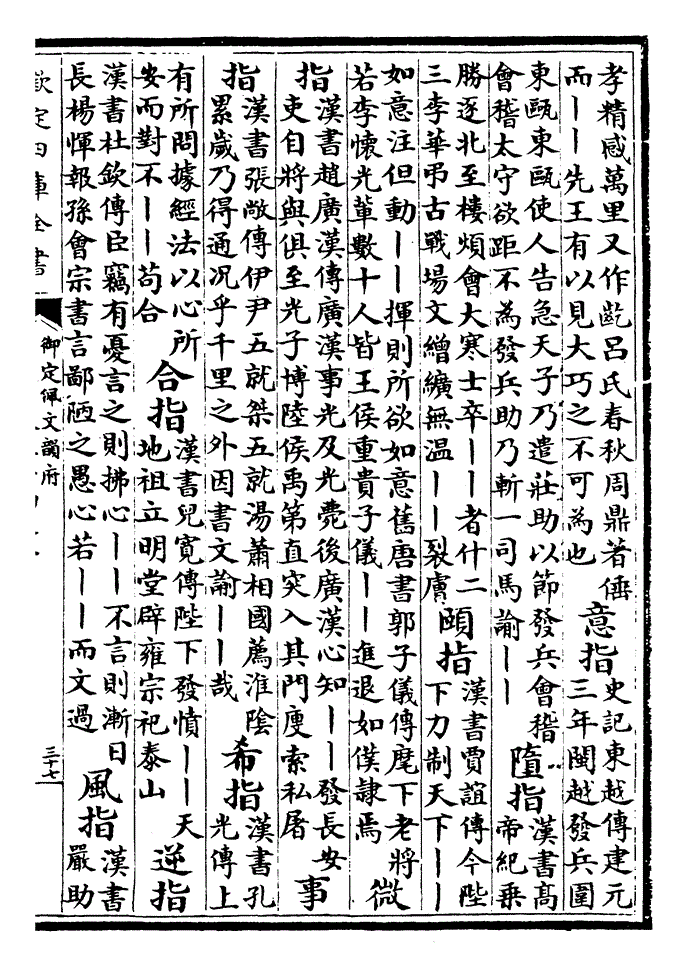 孝精感萬里又作齕呂氏春秋周鼎著倕
而丨丨先王有以見大巧之不可為也
意指
史記東越傳建元
三年閩越發兵圍
東甌東甌使人告急天子乃遣莊助以節發兵會稽
會稽太守欲距不為發兵助乃斬一司馬諭丨丨
墮指
漢書髙
帝紀乗
勝逐北至樓煩會大寒士卒丨丨者什二
三李華弔古戰場文繒纊無温丨丨裂膚
頤指
漢書賈誼傳今陛
下力制天下丨丨
如意注但動丨丨揮則所欲如意舊唐書郭子儀傳麾下老將
若李懷光軰數十人皆王侯重貴子儀丨丨進退如僕隷焉
微
指
漢書趙廣漢傳廣漢事光及光薨後廣漢心知丨丨發長安
吏自將與俱至光子博陸侯禹第直突入其門廋索私屠
事
指
漢書張敞傳伊尹五就桀五就湯蕭相國薦淮隂
累嵗乃得通况乎千里之外因書文諭丨丨哉
希指
漢書孔
光傳上
有所問據經法以心所
安而對不丨丨苟合
合指
漢書兒寛傳陛下發憤丨丨天
地祖立明堂辟雍宗祀泰山
逆指
漢書杜欽傳臣竊有憂言之則拂心丨丨不言則漸日
長楊惲報孫會宗書言鄙陋之愚心若丨丨而文過
風指
漢書
嚴助
欽定四庫全書
御定佩文韻府
三十七